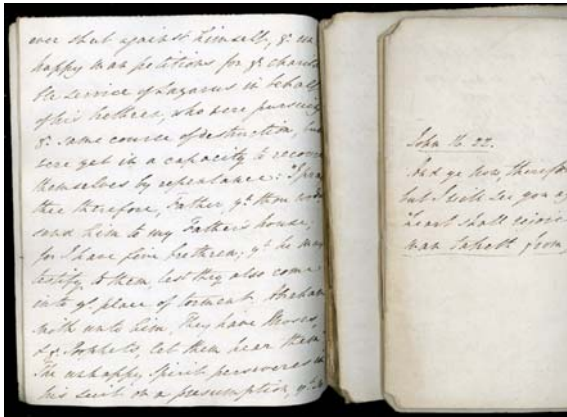 ever shut against himself, ye un
happy man petitions for ye charita
ble service of Lazarus in behalf
of his brethren, who were pursuing
ye same course of destruction, but
were yet in a capacity to recover
themselves by repentance: I pray
thee therefore, Father, yt thou wouldst
send him to my Father's house,
for I have five brethren, yt he may
testify to them, lest they also come
into ys place of torment. Abraham
saith unto him, They have Moses,
& ye Prophets, let them hear them
The unhappy Spirit perseveres in
his suit on a presumption, yt
John 16. 22.
And ye now, therefore
but I will see you ag
heart shall rejoice
man taketh from